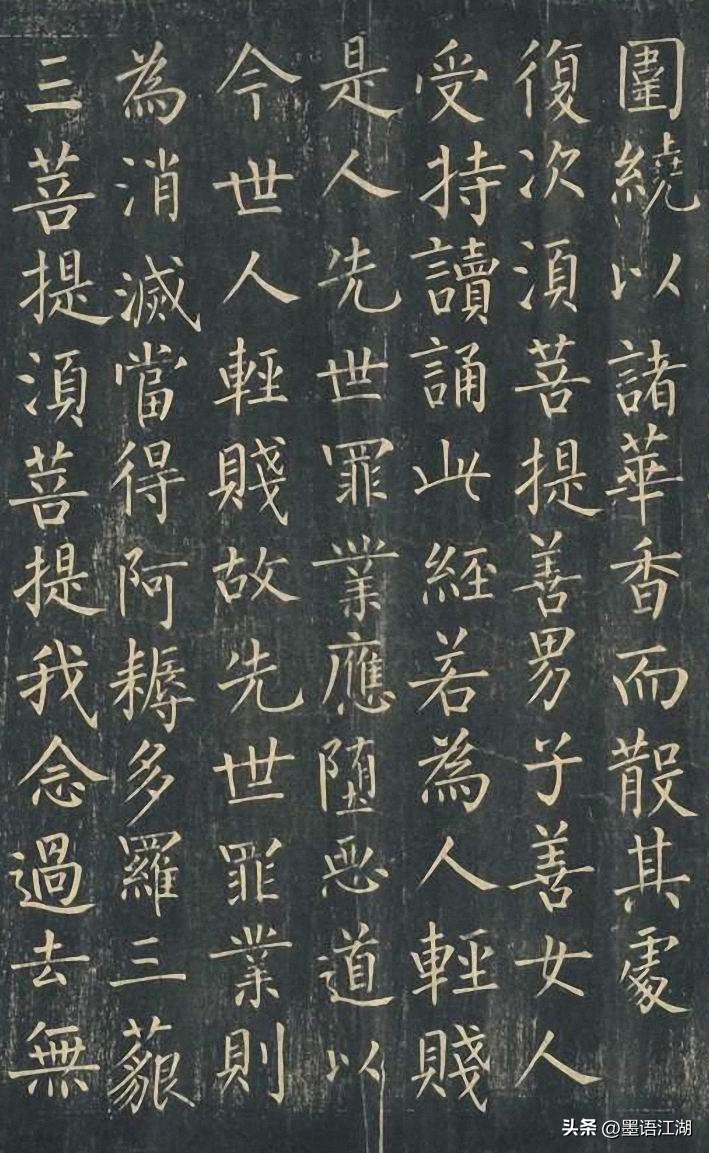 圍繞以諸華香而散其處
復次須菩提善男子善女人
受持讀誦此經若為人輕賤
是人先世罪業應墮惡道以
今世人輕賤故先世罪業則
為消滅當得阿耨多羅三藐
三菩提須菩提我念過去無
头条 @墨语江湖